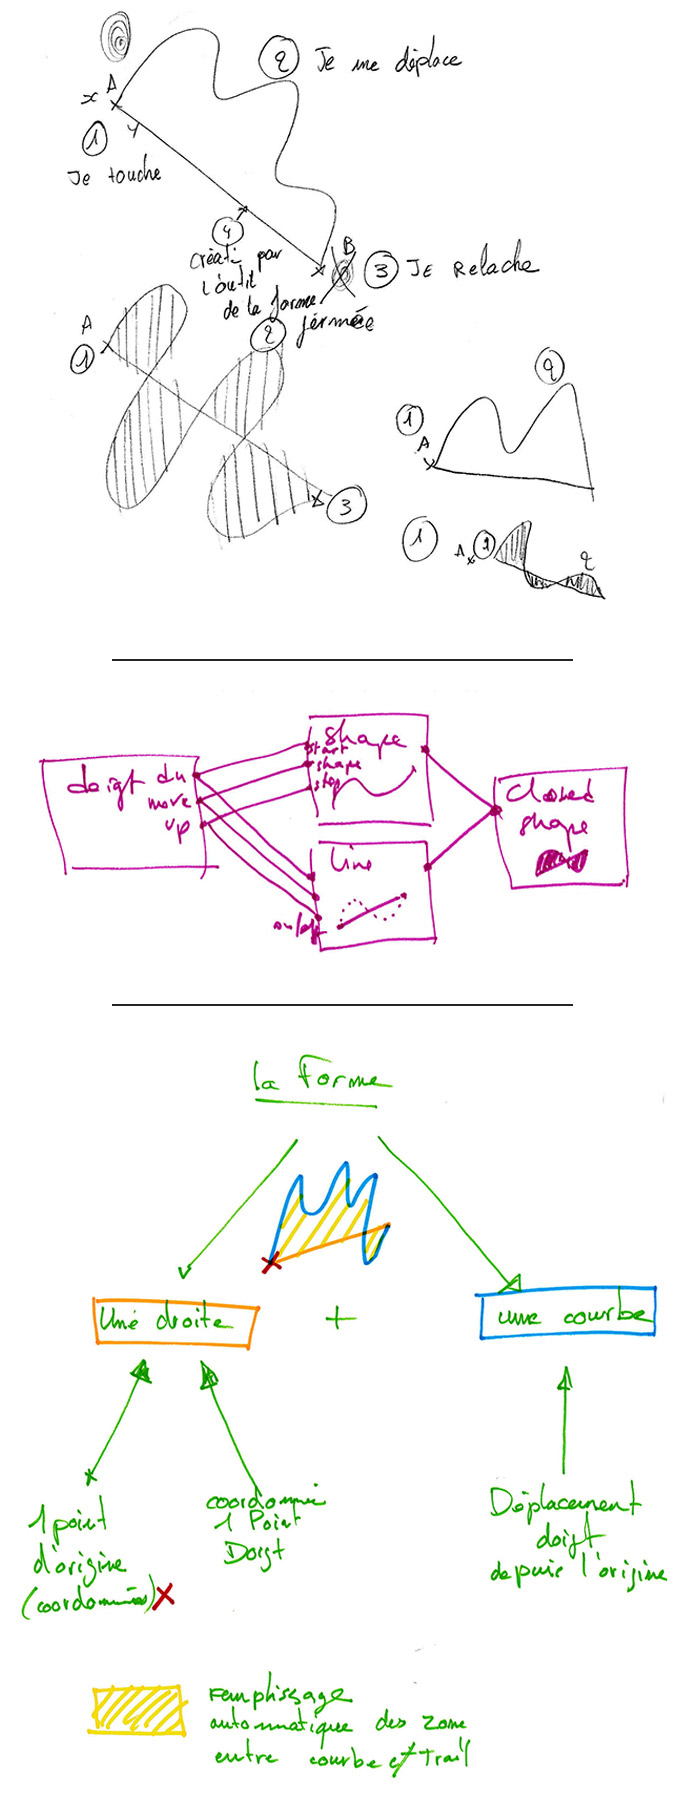 A
2 Je me déplace
x
1
y
Je touche
4
Créati par
l'outil
de la forme
fermée
B
3 Je Relache
A
1
2
3
2
1
A
1
A x 1
2
shape
start
shape
stop
doigt
move
up
line
Closed
shape
la Forme
Une droite
+
une courbe
1 point
d'origine
(coordonnées) x
coordonnée
1 Point
Doigt
Déplacement
doigt
depuis l'origine
remplissage
automatique des zone
entre courbe et trait